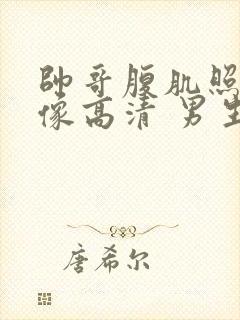 帥哥腹肌照
像高清 男生
唐希尔